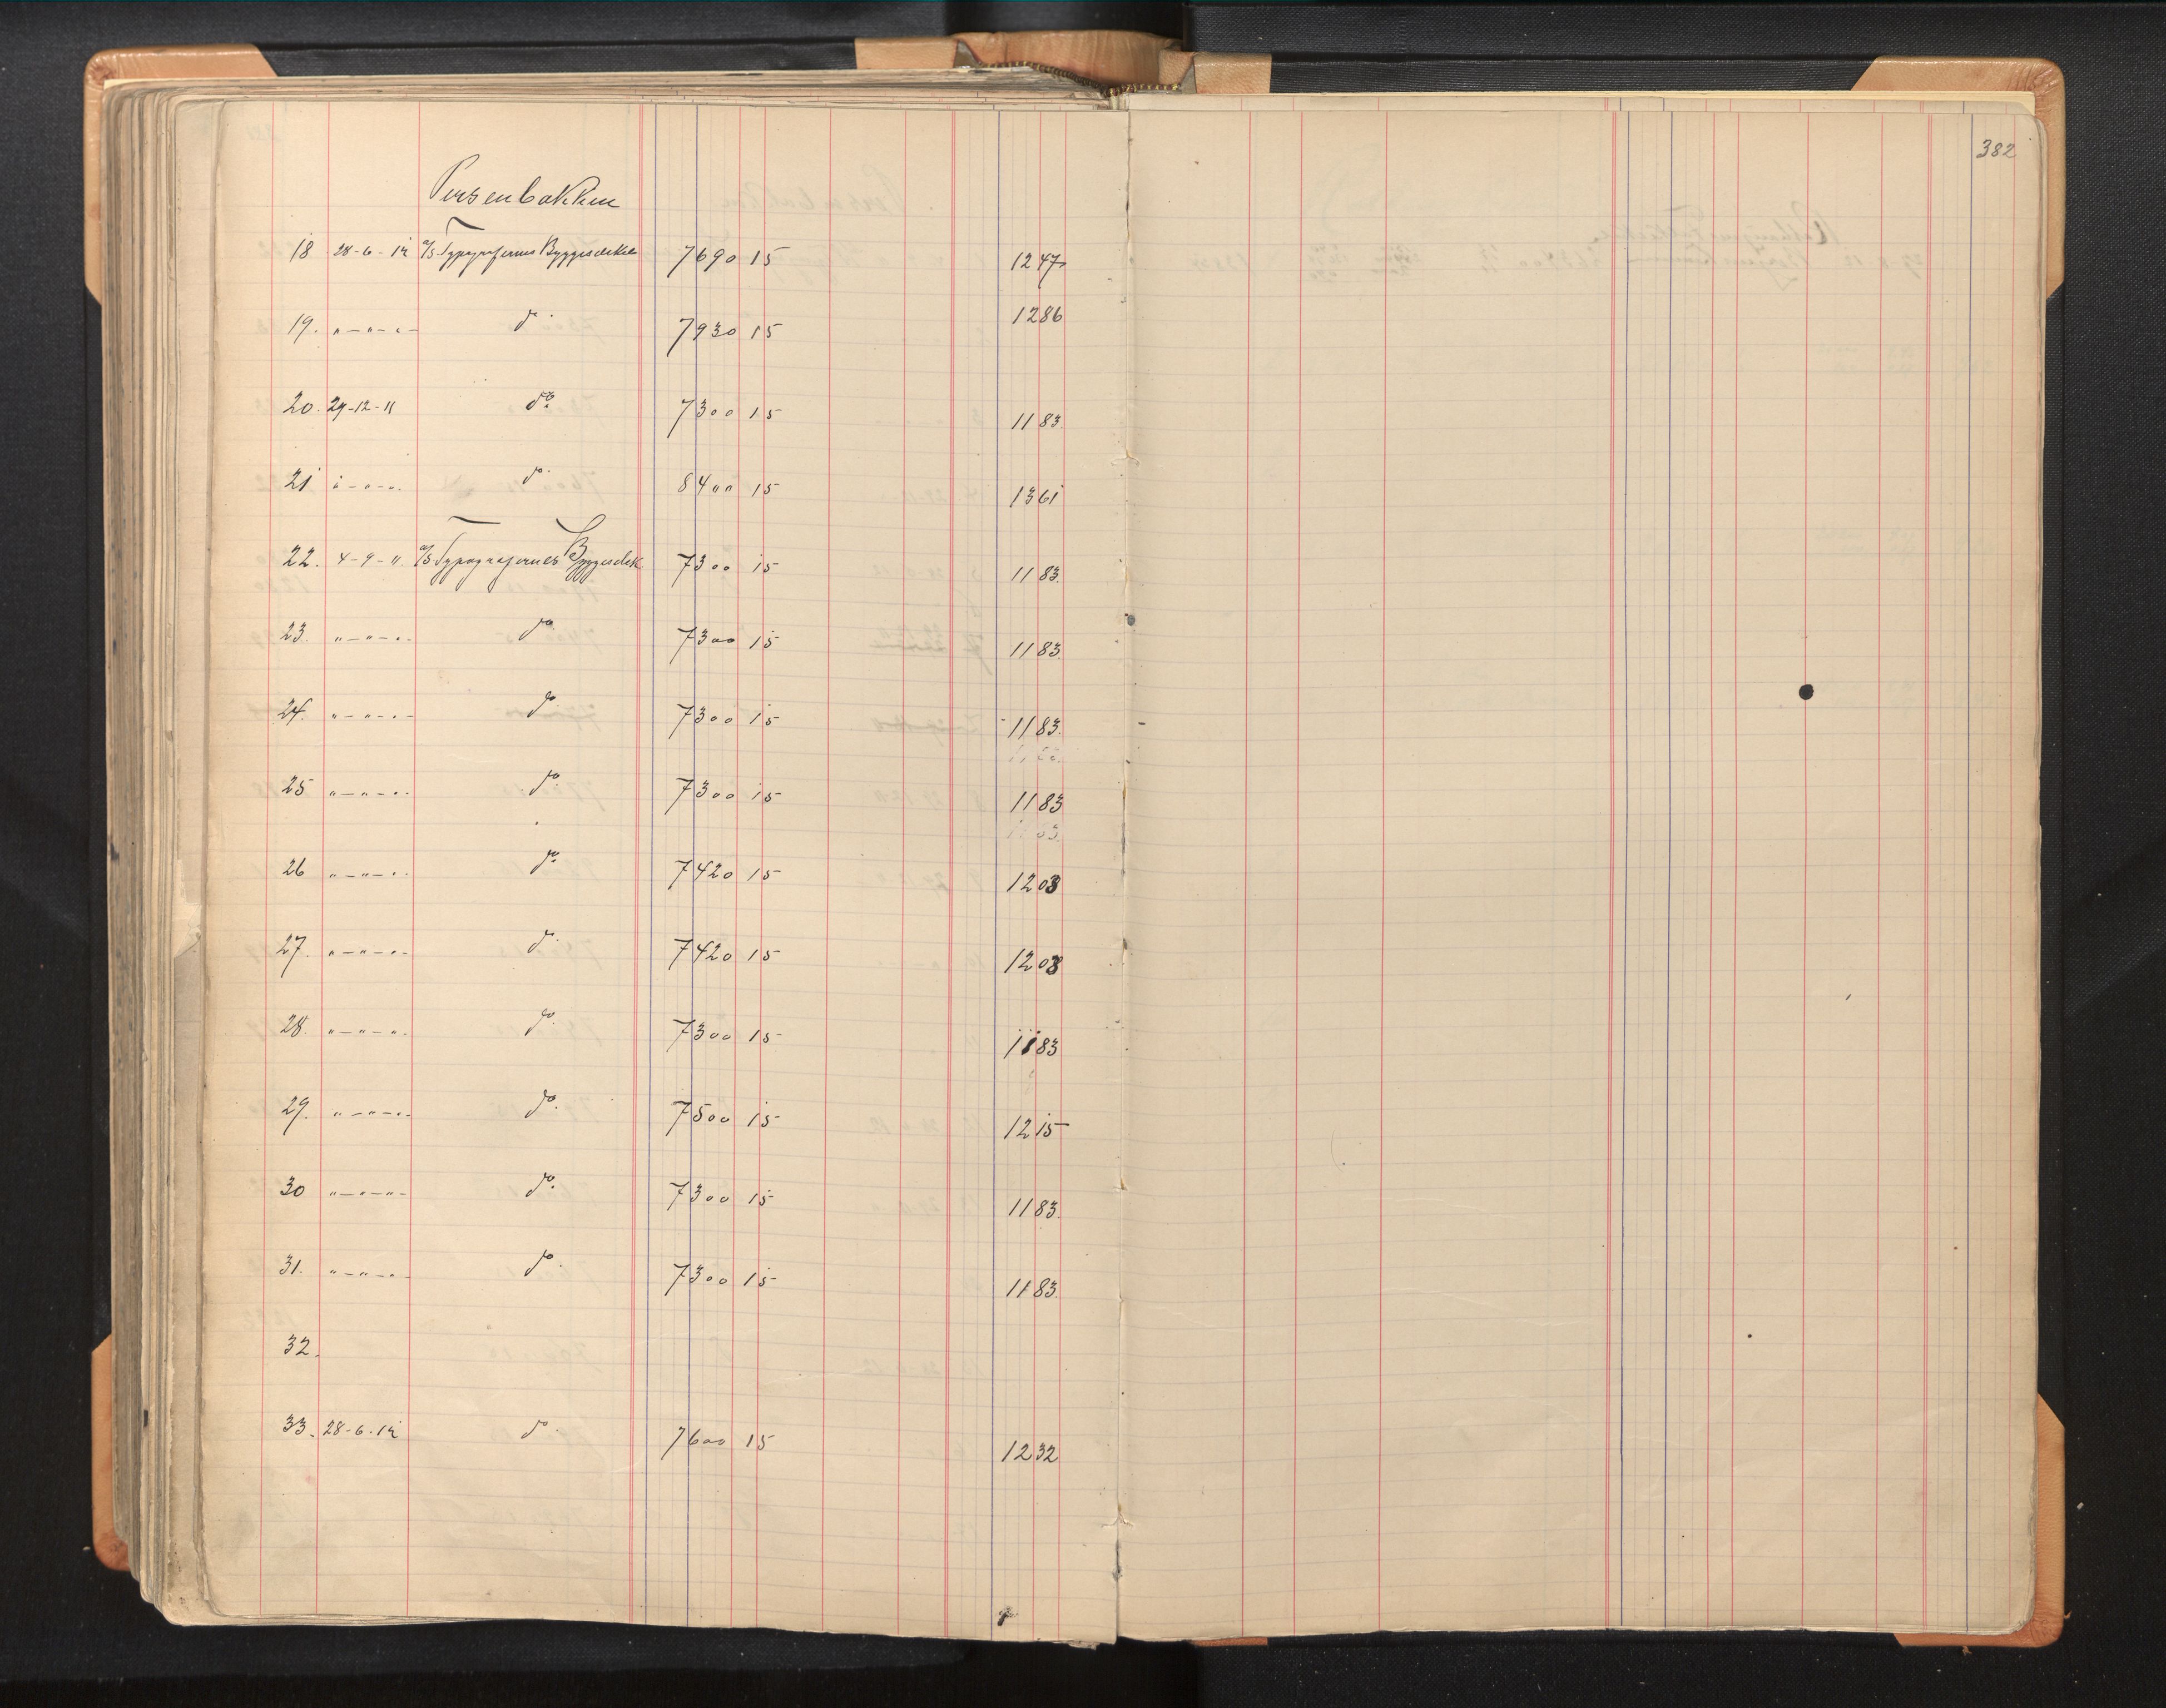 Persenbakken
18 28-6-12 A/S Typografernes Byggeselsk 7690 15 1247
19. "-"-"- do 7930 15 1286
20. 29-12-11 do. 7300 15 1183
21 "-"-". do. 8400 15 1361
22. 4-9-11. A/S Typografernes Byggeselsk 7300 15 1183.
23. "-"-". do. 7300 15 1183.
24. "-"-"- do. 7300 15 1183.
25 "-"-". do. 7300 15 1183
26 "-"-". do. 7420 15 1203
27. "-"-"- do. 7420 15 1203
28. "-"-". do. 7300 15 1183
29. "-"-"- do. 7500 15 1215
30 "-"-"- do. 7300 15 1183.
31. "-"-"- do. 7300 15 1183.
32.
33. 28-6-12 do. 7600 15 1232
382